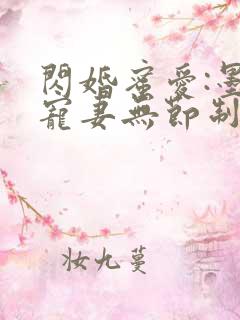 閃婚蜜愛:墨
寵妻無節制
妝九蔓